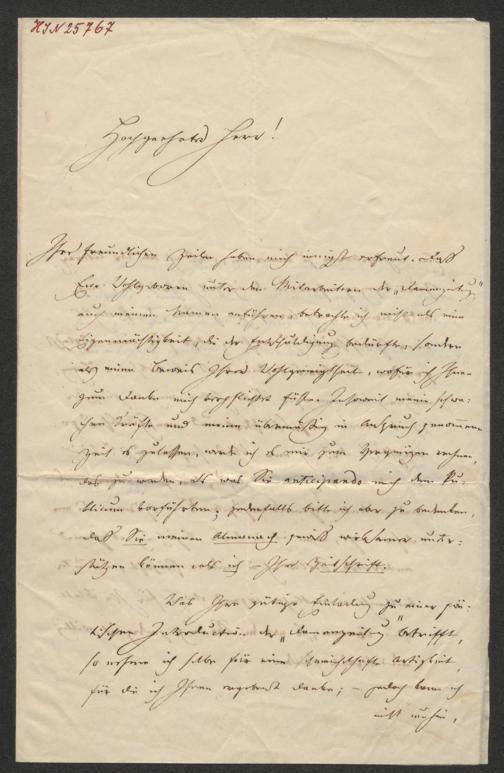 HIN 25767
Hochgeehrter Herr!
Ihre freundlichen Zeilen haben mich innigst erfreut. Daß
Euer Wohlgeboren unter den Mitarbeitern der „Damenzeitung“
auch meinen Namen anführen, betrachte ich nicht als eine
Eigenmächtigkeit, die der Entschuldigung bedürfte, sondern
als einen Beweis Ihrer Wohlgeneigtheit, wofür ich Ihnen
zum Danke mich verpflichtet fühle. Insoweit meine schwa-
chen Kräfte und meine übermäßig in Anspruch genommene
Zeit es zulassen, werde ich es mir zum Vergnügen rechnen
das zu werden, als was Sie anticipando mich dem Pu-
blicum vorführten; jedenfalls bitte ich aber zu bedenken,
daß Sie meinen Almanach gewiß wirksamer unter-
stützen können als ich – Ihre Zeitschrift.
Was Ihre gütige Einladung zu einer poe-
tischen Introduction der „Damenzeitung“ betrifft,
so nehme ich selbe für eine schmeichelhafte Artigkeit,
für die ich Ihnen ergebenst danke; – jedoch kann ich
nicht umhin,